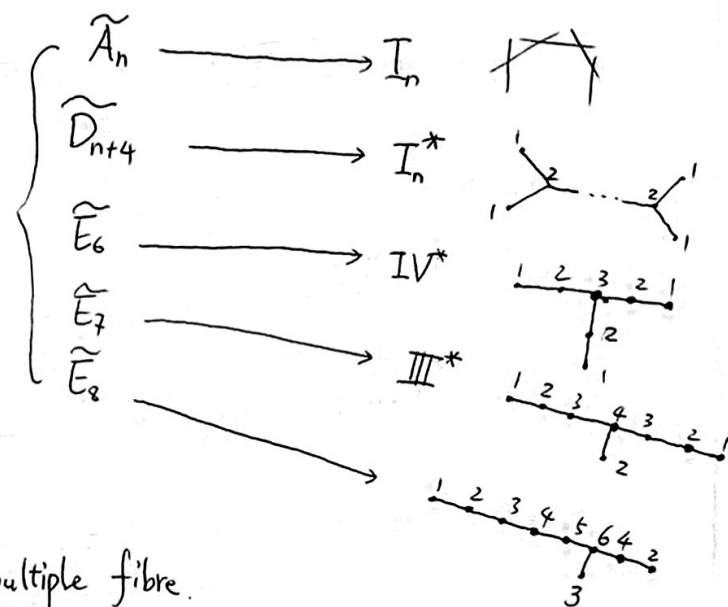 Ãₙ → Iₙ
D̃ₙ₊₄ → Iₙ*
1 1
2 2
1 1
Ẽ₆ → IV*
1 2 3 2 1
2
1
Ẽ₇ → III*
1 2 3 4 3 2 1
2
Ẽ₈ →
1 2 3 4 5 6 4 2
3
ultiple fibre.